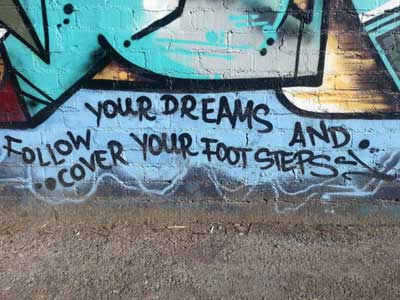 FOLLOW YOUR DREAMS AND..
..COVER YOUR FOOT STEPS